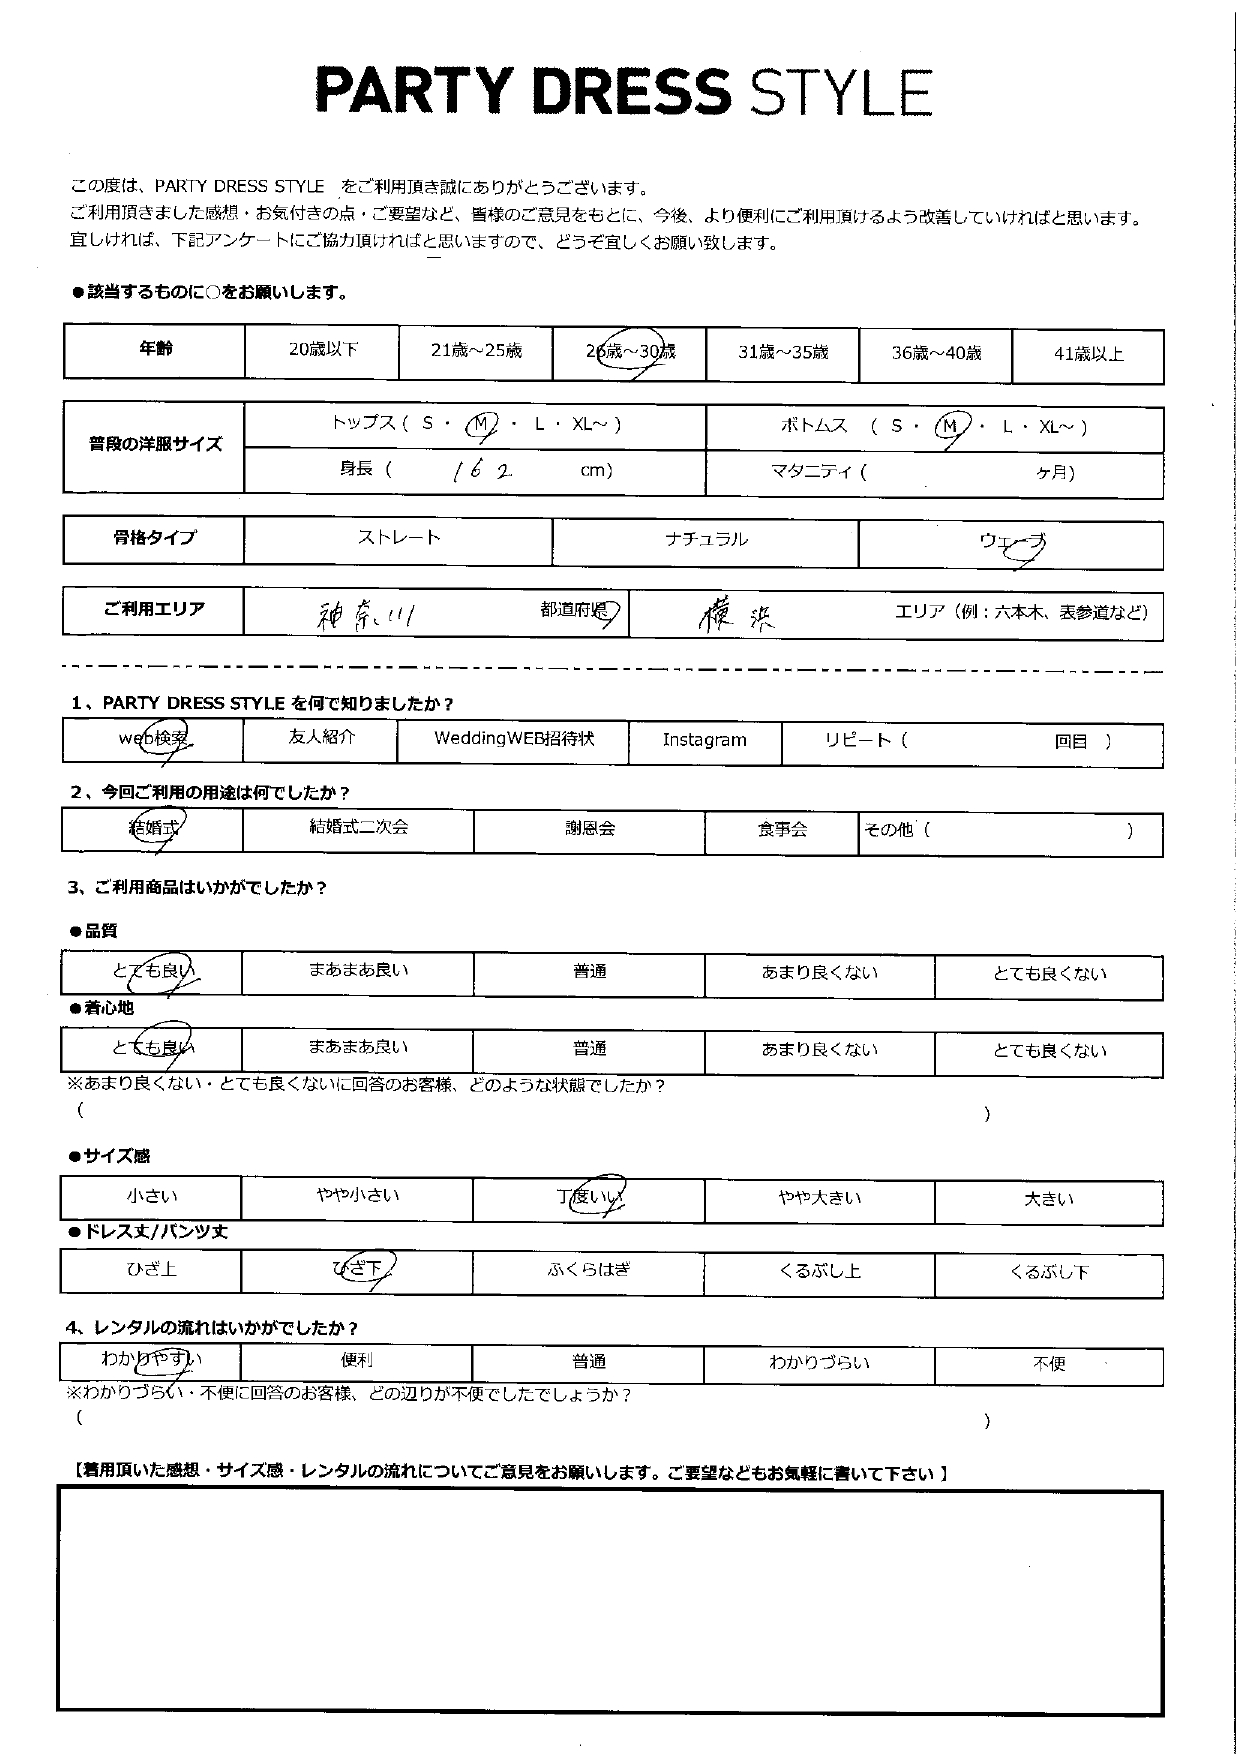 PARTY DRESS STYLE
この度は、PARTY DRESS STYLE をご利用頂き誠にありがとうございます。
ご利用頂きました感想・お気付きの点・ご要望など、皆様のご意見をもとに、今後、より便利にご利用頂けるよう改善していければと思います。
宜しければ、下記アンケートにご協力頂ければと思いますので、どうぞ宜しくお願い致します。
●該当するものに○をお願いします。
年齢 20歳以下 21歳～25歳 26歳～30歳 31歳～35歳 36歳～40歳 41歳以上
普段の洋服サイズ
トップス ( S ・ M ・ L ・ XL～ ) ボトムス ( S ・ M ・ L ・ XL～ )
身長 ( 162 cm) マタニティ ( ヶ月)
骨格タイプ ストレート ナチュラル ウェーブ
ご利用エリア 神奈川 都道府県 横浜 エリア（例：六本木、表参道など）
1、PARTY DRESS STYLE を何で知りましたか？
web検索 友人紹介 WeddingWEB招待状 Instagram リピート ( 回目 )
2、今回ご利用の用途は何でしたか？
結婚式 結婚式二次会 謝恩会 食事会 その他 ( )
3、ご利用商品はいかがでしたか？
●品質
とても良い まあまあ良い 普通 あまり良くない とても良くない
●着心地
とても良い まあまあ良い 普通 あまり良くない とても良くない
※あまり良くない・とても良くないに回答のお客様、どのような状態でしたか？
( )
●サイズ感
小さい やや小さい 丁度いい やや大きい 大きい
●ドレス丈/パンツ丈
ひざ上 ひざ下 ふくらはぎ くるぶし上 くるぶし下
4、レンタルの流れはいかがでしたか？
わかりやすい 便利 普通 わかりづらい 不便
※わかりづらい・不便に回答のお客様、どの辺りが不便でしたでしょうか？
( )
【着用頂いた感想・サイズ感・レンタルの流れについてご意見をお願いします。ご要望などもお気軽に書いて下さい 】